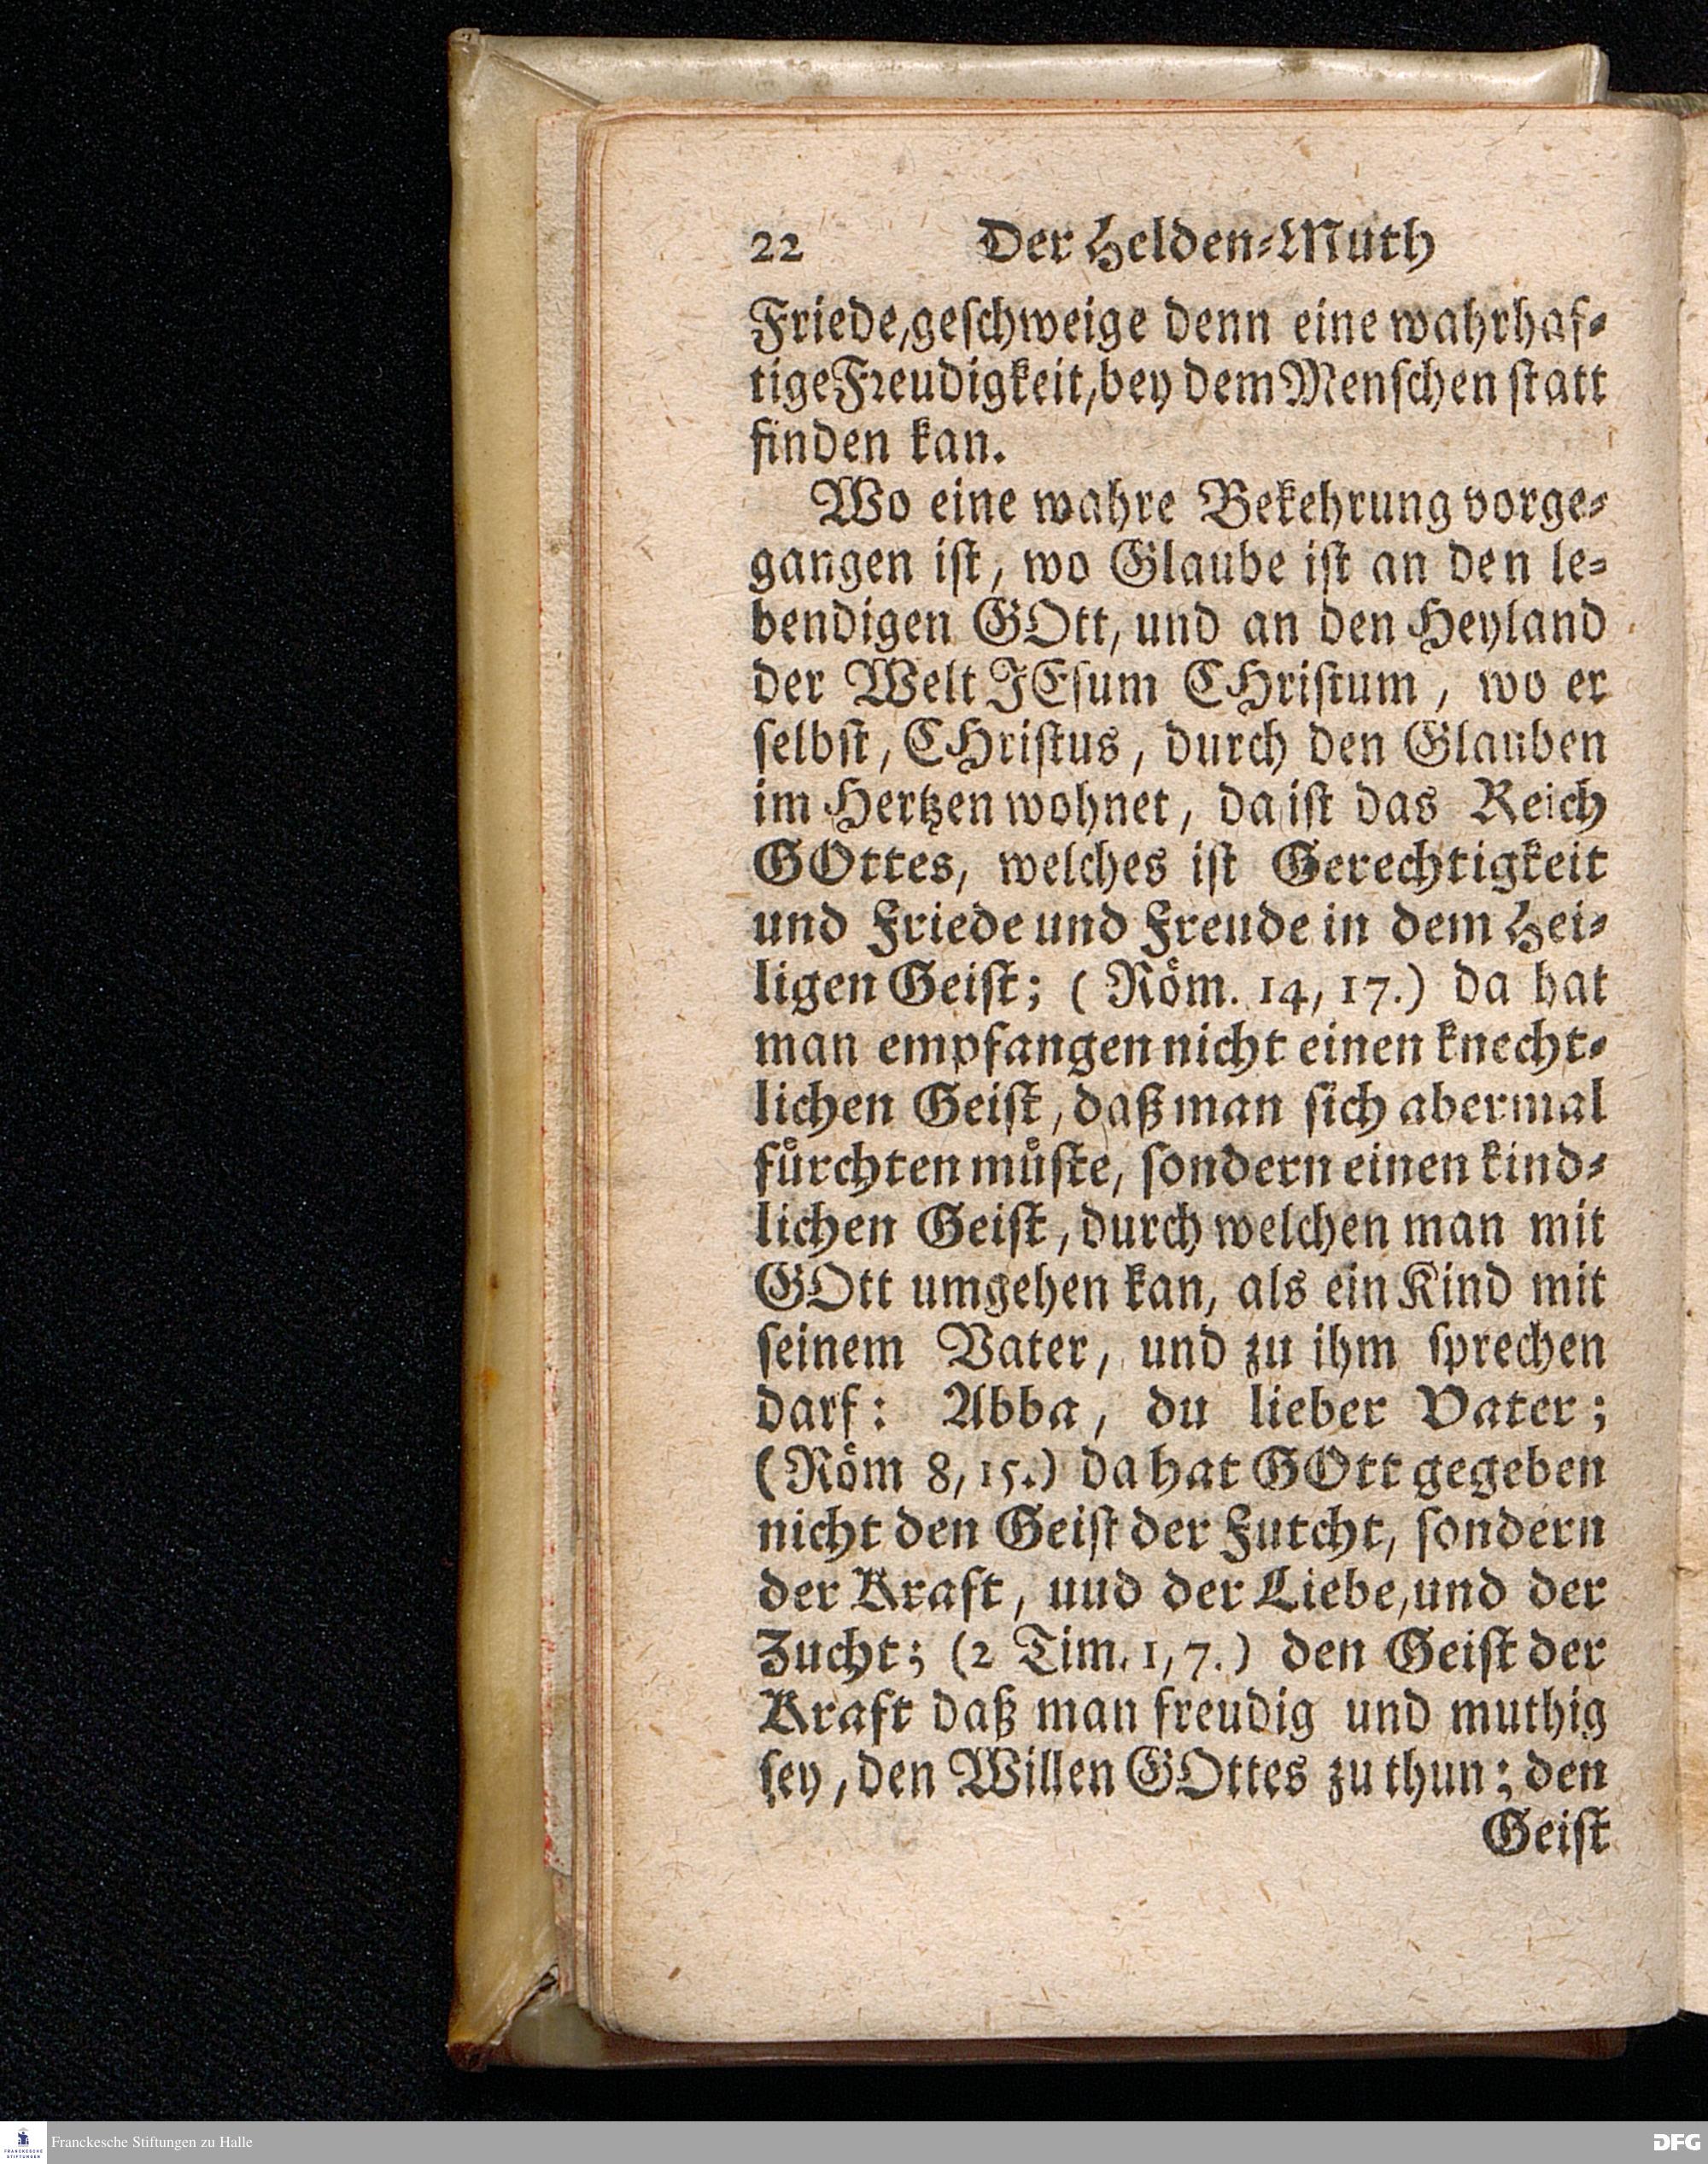 22 Der Helden⸗Muth
Friede, geſchweige denn eine wahrhaf⸗
tige Freudigkeit, bey dem Menſchen ſtatt
finden kan.
Wo eine wahre Bekehrung vorge⸗
gangen iſt, wo Glaube iſt an den le⸗
bendigen GOtt, und an den Heyland
der Welt JEſum CHriſtum, wo er
ſelbſt, CHriſtus, durch den Glauben
im Hertzen wohnet, da iſt das Reich
GOttes, welches iſt Gerechtigkeit
und Friede und Freude in dem Hei⸗
ligen Geiſt; (Roͤm. 14, 17.) da hat
man empfangen nicht einen knecht⸗
lichen Geiſt, daß man ſich abermal
fuͤrchten muͤſte, ſondern einen kind⸗
lichen Geiſt, durch welchen man mit
GOtt umgehen kan, als ein Kind mit
ſeinem Vater, und zu ihm ſprechen
darf: Abba, du lieber Vater;
(Roͤm 8, 15.) da hat GOtt gegeben
nicht den Geiſt der Futcht, ſondern
der Kraft, uud der Liebe, und der
Zucht; (2 Tim. 1, 7.) den Geiſt der
Kraft daß man freudig und muthig
ſey, den Willen GOttes zu thun; den
Geiſt
FRANCKESCHE STIFTUNGEN
Franckesche Stiftungen zu Halle
DFG